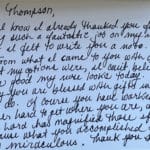 Thompson,
know I already thanked you
such a fantastic job on my
I felt to write you a note.
from what it came to you with
my options were, it can't
good my nose looks today.
you are blessed with gifts
do. Of course you have worked
hard to get where you are,
hard had magnified those
what you accomplished
miraculous. Thank you